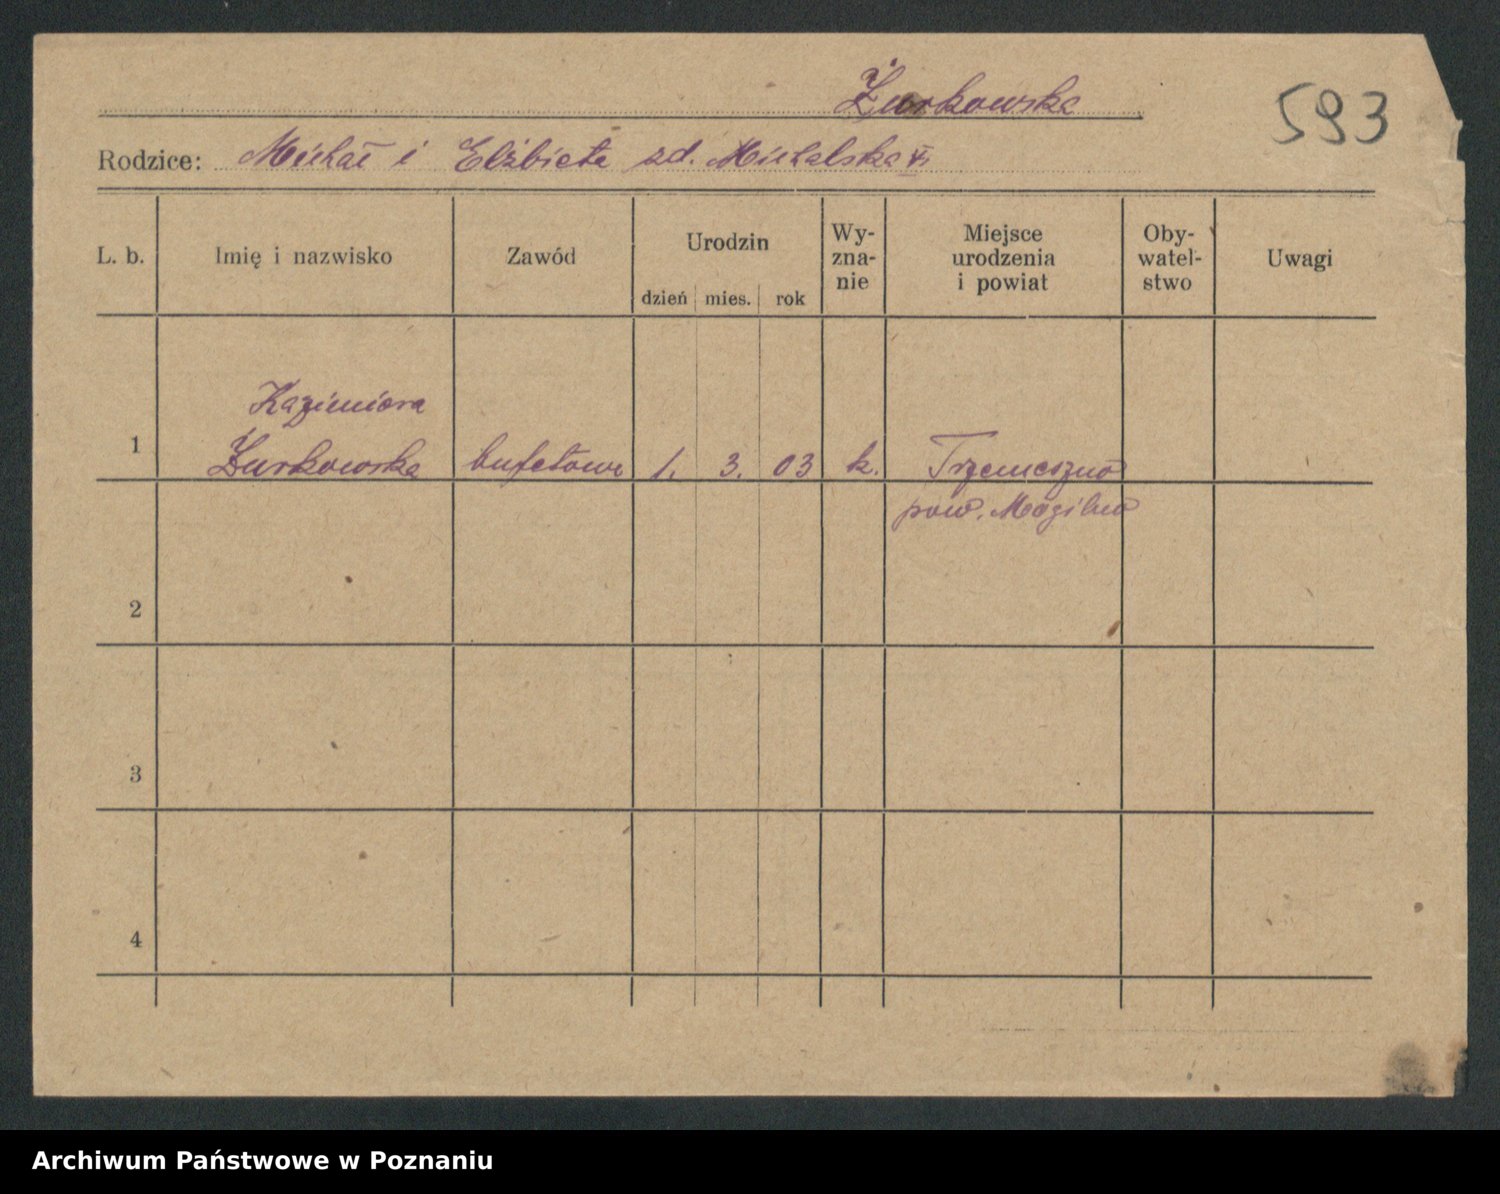 Żurkowska
593
Rodzice: Michał i Elżbieta zd. Michalska
L. b. Imię i nazwisko Zawód Urodzin Wy-zna-nie Miejsce urodzenia i powiat Oby-watel-stwo Uwagi
dzień mies. rok
Kazimiera
1 Żurkowska bufetowa 1. 3. 03 k. Trzemeszno
pow. Mogilno
2
3
4
Archiwum Państwowe w Poznaniu